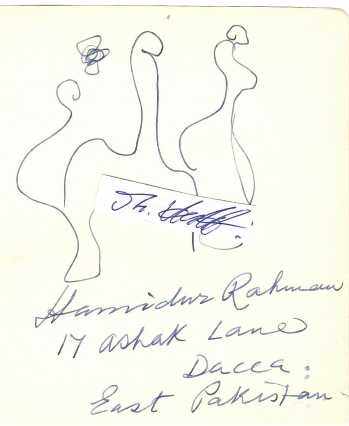 Hamidur Rahman
17 ashak Lane
Dacca:
East Pakistan